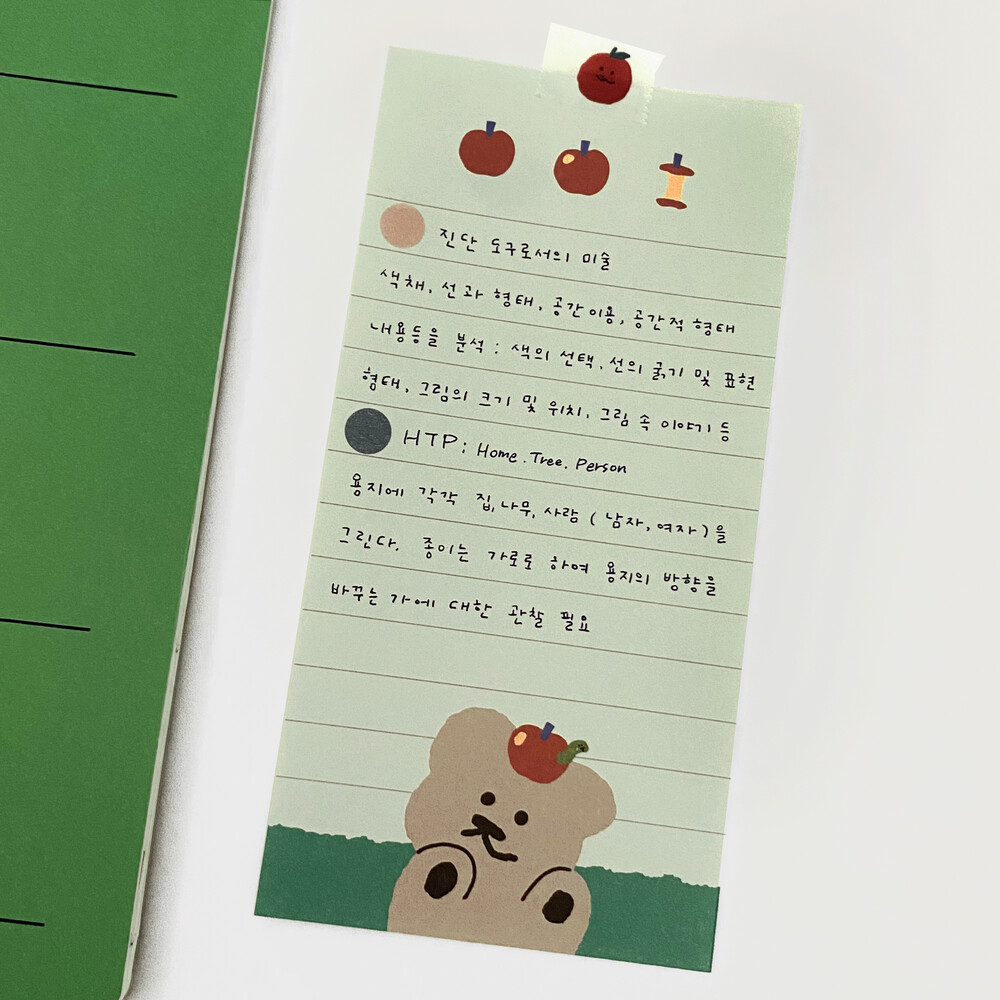 진단 도구로서의 미술
색채, 선과 형태, 공간이용, 공간적 형태
내용등을 분석 : 색의 선택, 선의 굵기 및 표현
형태, 그림의 크기 및 위치, 그림 속 이야기 등
HTP; Home. Tree. Person
용지에 각각 집, 나무, 사람 (남자, 여자)을
그린다. 종이는 가로로 하여 용지의 방향을
바꾸는 가에 대한 관찰 필요